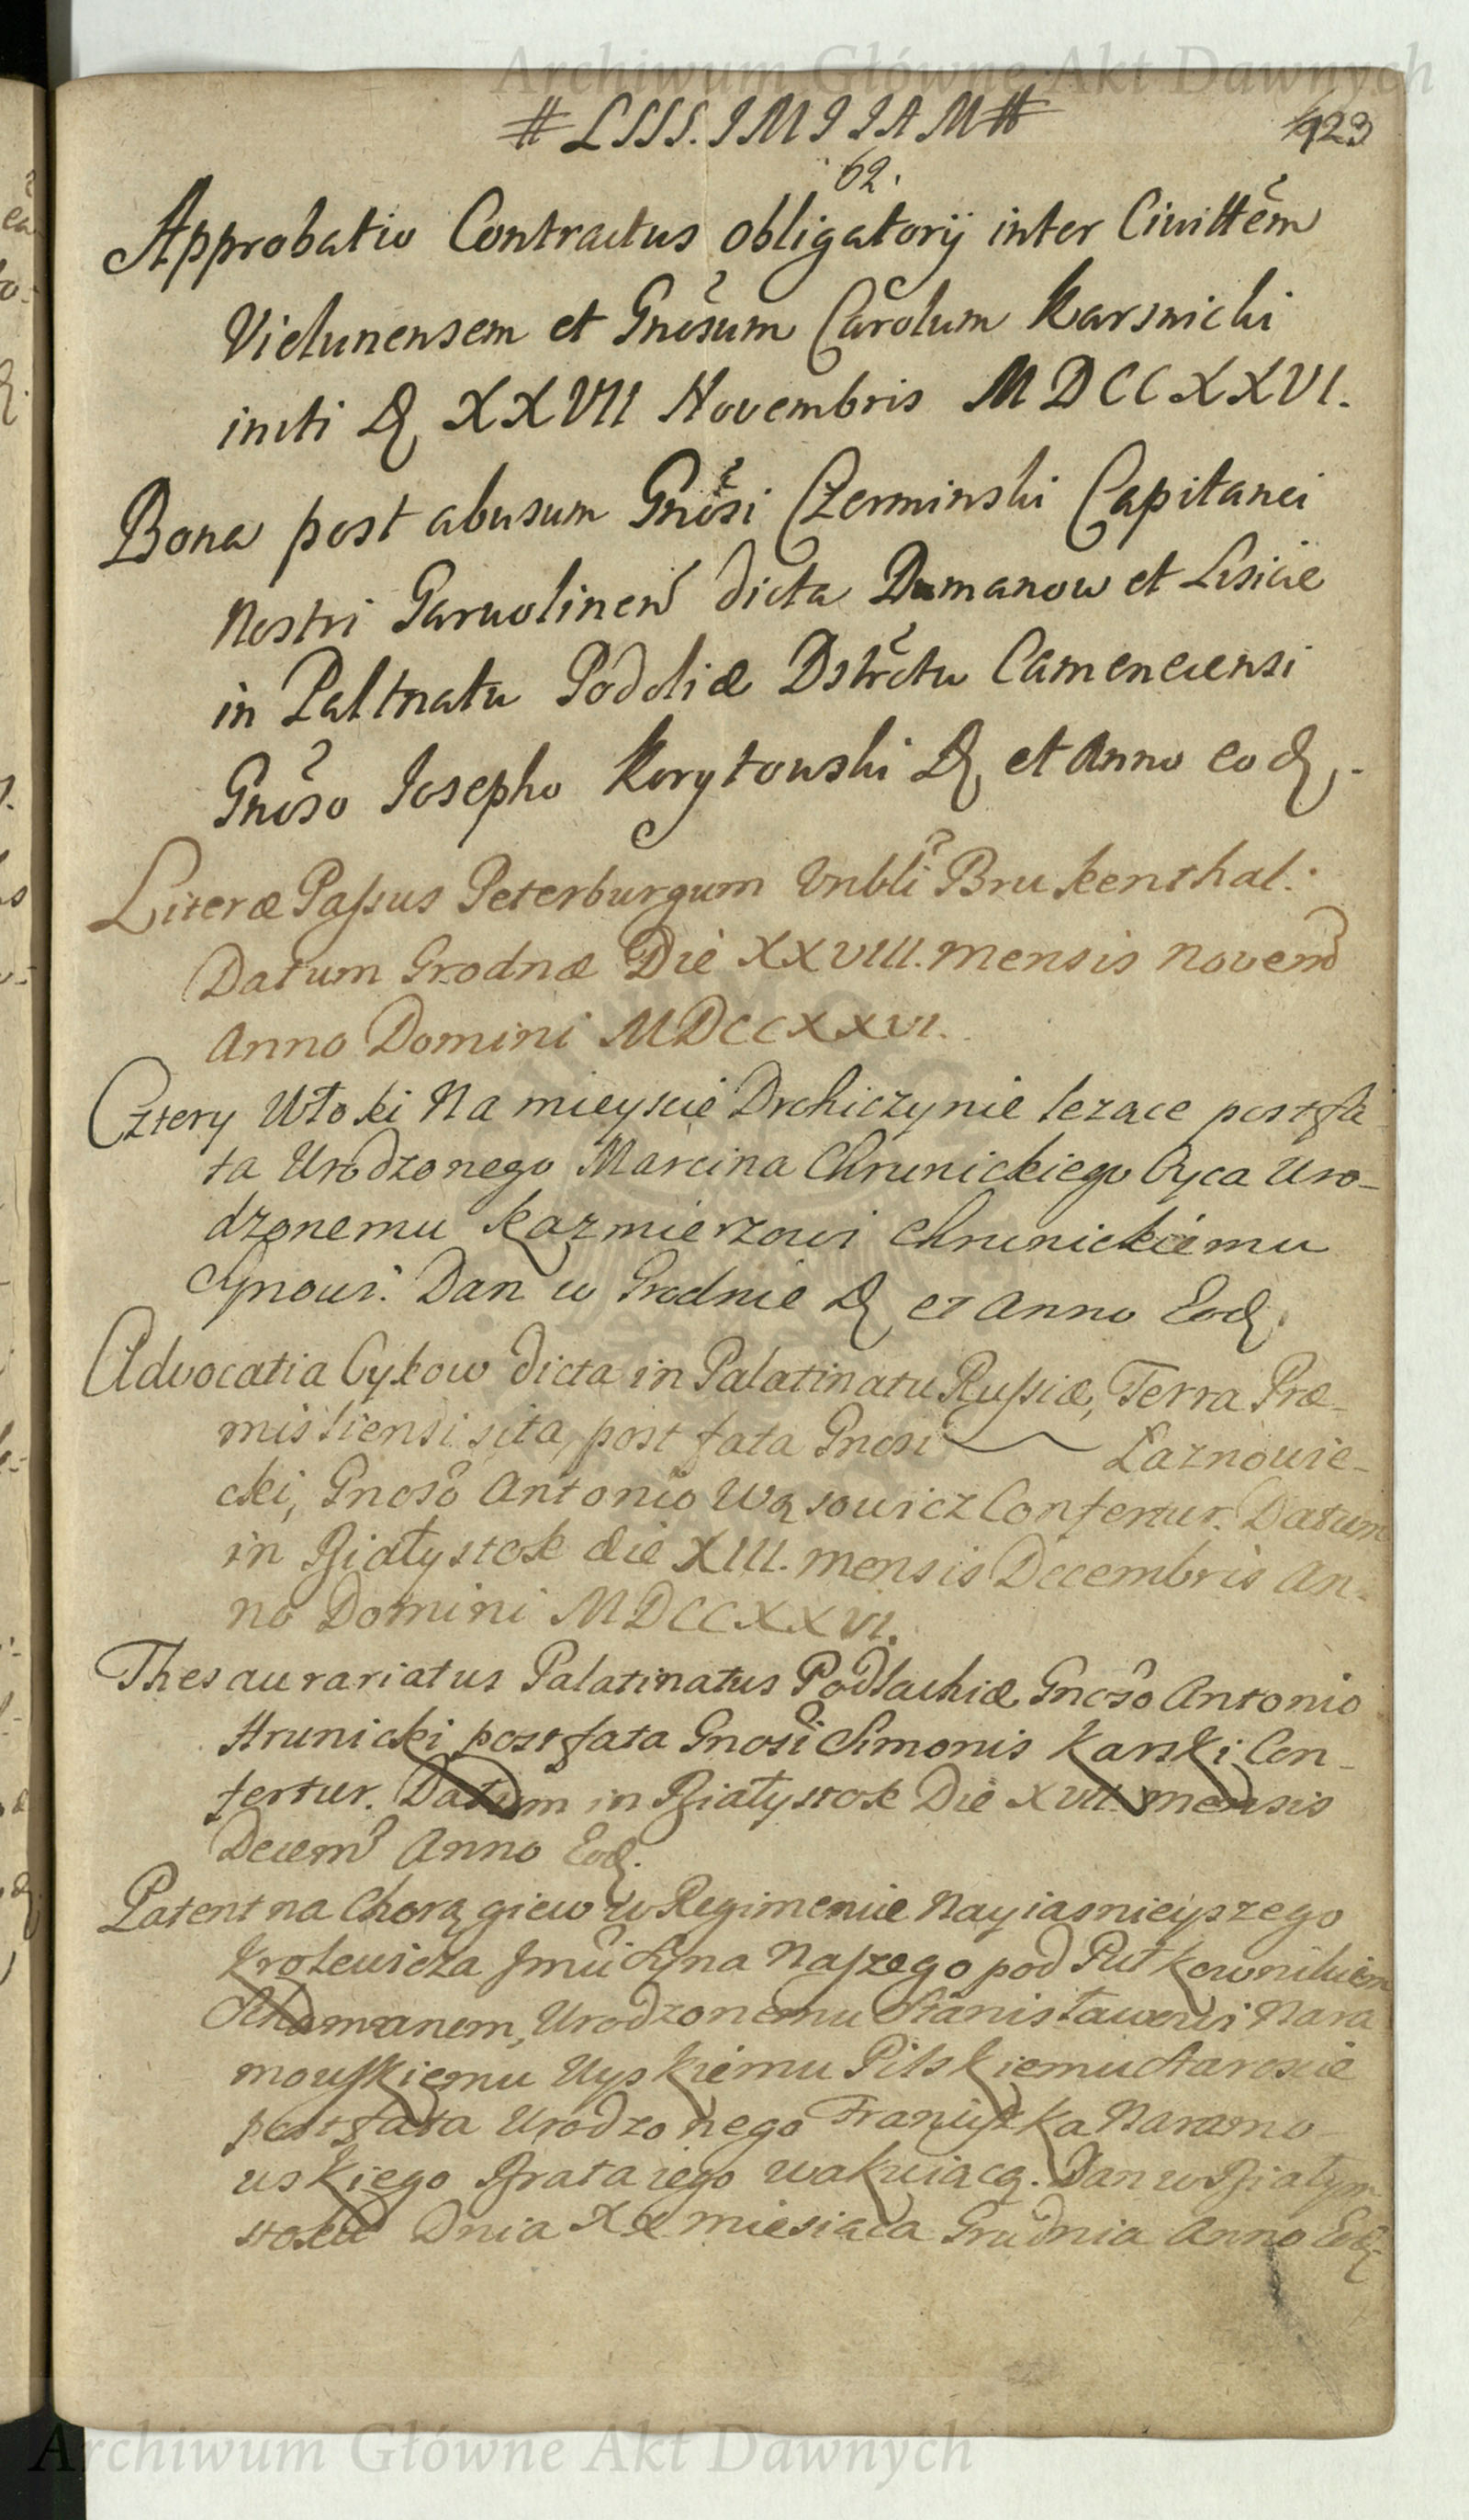 Archiwum Główne Akt Dawnych
# LSSS. IMIIAM #
423
62.
Approbatio Contractus obligatorij inter Civittem
Vielunensem et Gnosum Carolum Karsnicki
initi D XXVII Novembris MDCCXXVI.
Bona post abusum Gnosi Czerminski Capitanei
Nostri Garwolinen dicta Dumanow et Lisicie
in Paltnatu Podoliæ Dstrctu Camenecensi
Gnoso Iosepho Korytowski D et Anno eod.
Literæ Passus Peterburgum Gnbli Brukenthal.
Datum Grodnæ Die XXVIII. mensis Novem
Anno Domini MDCCXXVI.
Cztery Włoki Na mieyscie Drohiczynie lezace post fa
ta Urodzonego Marcina Chrunickiego Oyca Uro-
dzonemu Kazmierzowi Chrunickiemu
Synowi. Dan w Grodnie D et Anno Eod.
Advocatia Cykow dicta in Palatinatu Russiæ, Terra Præ-
misliensi sita, post fata Gnosi Łaznowie-
cki, Gnoso Antonio Wąsowicz Confertur. Datum
in Białystok die XIII. mensis Decembris An-
no Domini MDCCXXVI.
Thesaurariatus Palatinatus Podlachiæ Gnoso Antonio
Hrunicki post fata Gnosi Simonis Karski Con-
fertur. Datum in Białystok Die XVII. mensis
Decem Anno Eod.
Patent na Chorągiew w Regimencie Nayiasnieyszego
Krolewicza Jmci Syna Naszego pod Pułkownikiem
Urodzonemu Stanisławowi Nara
mowskiemu Uyskiemu Pilskiemu Staroscie
post fata Urodzonego Franciszka Naramo-
wskiego Brata iego wakuiącą. Dan w Białym
stoku Dnia XX miesiąca Grudnia Anno Eod.
Archiwum Główne Akt Dawnych